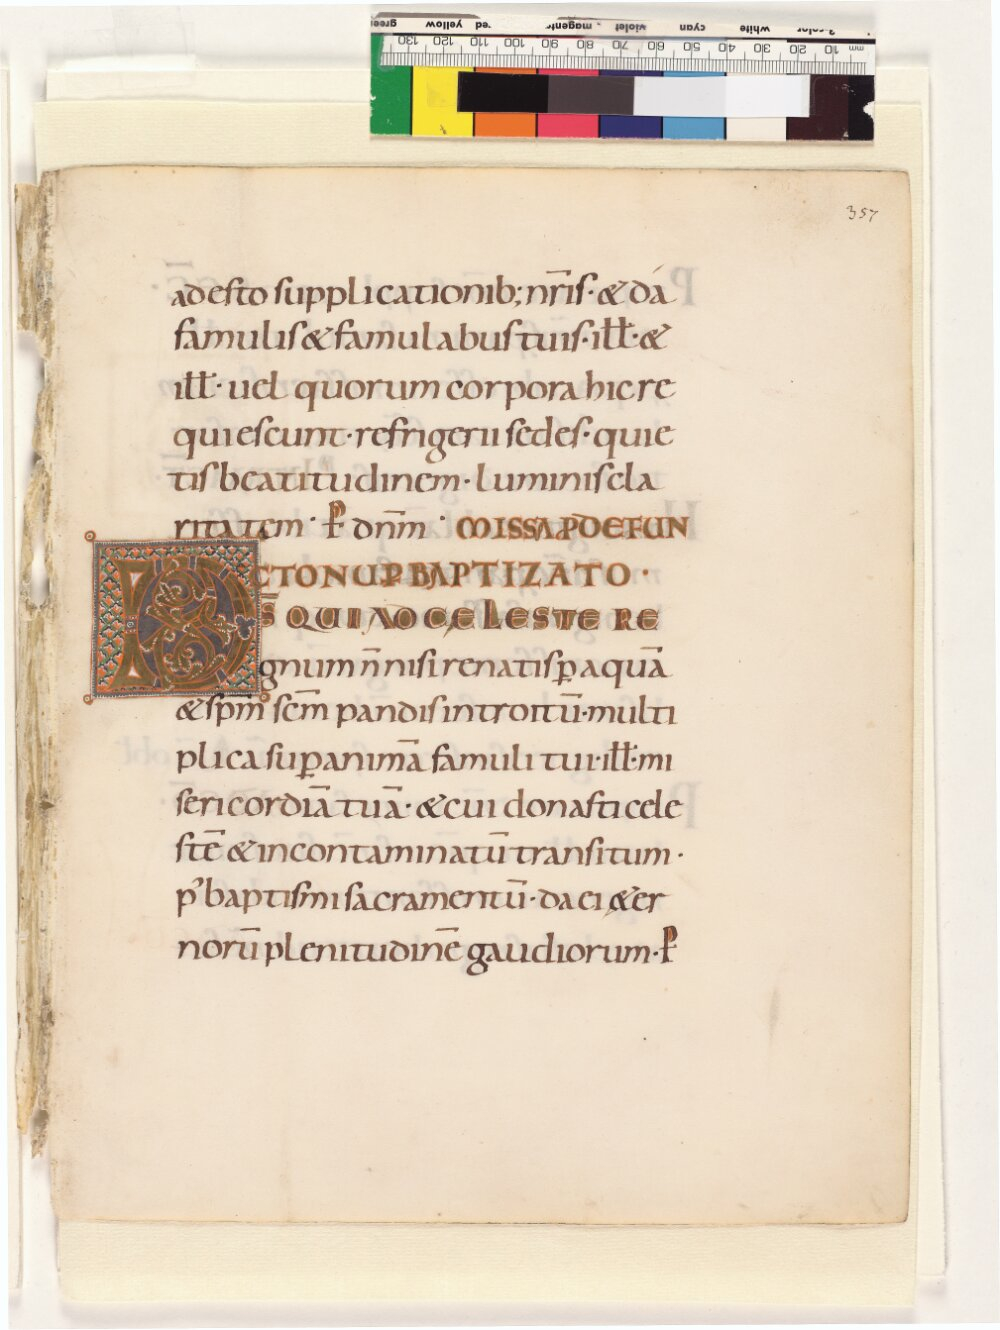 mm 10 20 30 40 50 60 70 80 90 100 110 120 130
white cyan violet magenta red yellow green
357
adesto supplicationib; nr̄is· & da
famulis & famulabus tuis· ill̄· &
ill̄· uel quorum corpora hic re
quiescunt· refrigerii sedes· quie
tis beatitudinem· luminis cla
ritatem· P̄ dn̄m· MISSA P DEFUN
CTO NUP BAPTIZATO·
D̄S QUI AD CELESTE RE
gnum n̄ nisi renatis p̄ aquā
& sp̄m sc̄m pandis introitū· multi
plica sup animā famuli tui· ill̄· mi
sericordiā tuā· & cui donasti cele
stē & incontaminatū transitum·
p' baptismi sacramentū· da ei & er
norū plenitudinē gaudiorum· P̄